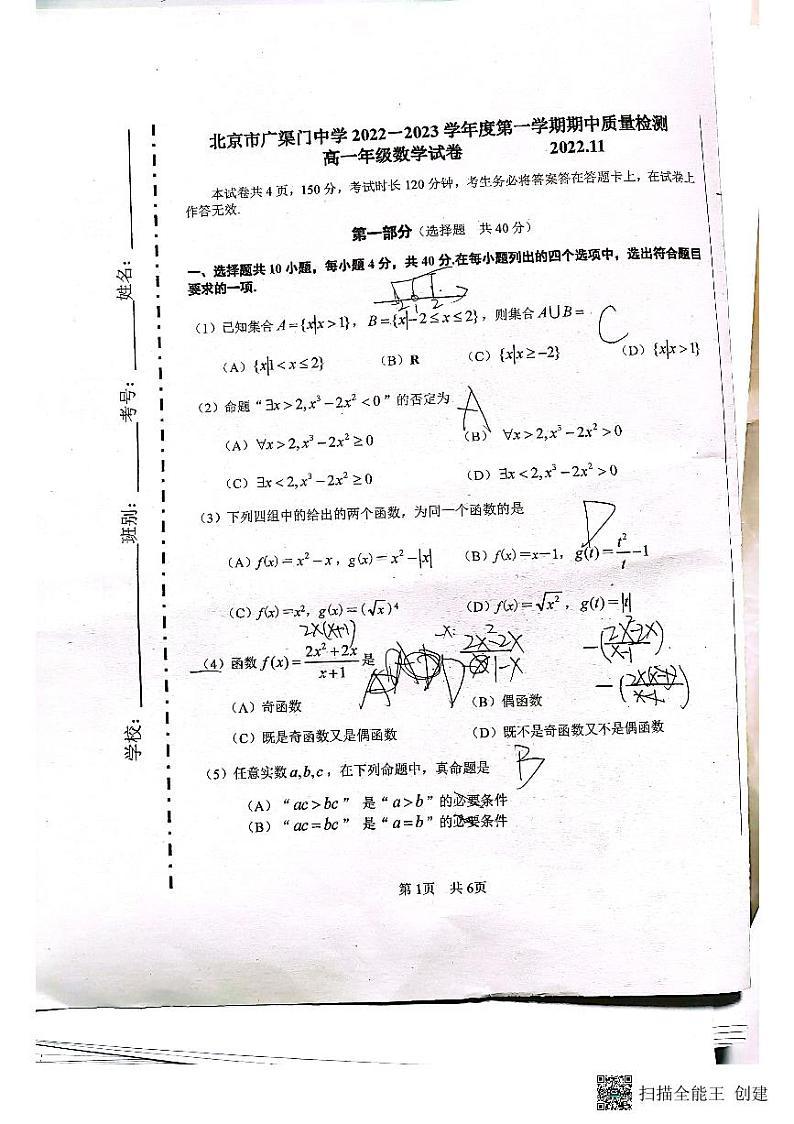 北京市广渠门中学 2022-2023 学年度第一学期期中质量检测
高一年级数学试卷 2022.11
本试卷共 4 页,150 分,考试时长 120 分钟,考生务必将答案答在答题卡上,在试卷上
作答无效.
第一部分(选择题 共 40 分)
一、选择题共 10 小题,每小题 4 分,共 40 分.在每小题列出的四个选项中,选出符合题目
要求的一项.
-2 1 2
(1)已知集合 A={x|x>1},B={x|-2≤x≤2},则集合 A∪B= C
(A){x|1<x≤2} (B)R (C){x|x≥-2} (D){x|x>1}
(2)命题“∃x>2,x³-2x²<0”的否定为 A
(A)∀x>2,x³-2x²≥0 (B)∀x>2,x³-2x²>0
(C)∃x<2,x³-2x²≥0 (D)∃x<2,x³-2x²>0
(3)下列四组中的给出的两个函数,为同一个函数的是 D
(A)f(x)=x²-x,g(x)=x²-|x| (B)f(x)=x-1,g(t)=t²/t-1
(C)f(x)=x²,g(x)=(√x)⁴ (D)f(x)=√x²,g(t)=|t|
2x(x+1)
(4)函数 f(x)=(2x²+2x)/(x+1) 是 D
-x: (2x²-2x)/(1-x) -((2x²-2x)/(x-1))
-(2x(x-1)/(x-1))
(A)奇函数 (B)偶函数
(C)既是奇函数又是偶函数 (D)既不是奇函数又不是偶函数
(5)任意实数 a,b,c,在下列命题中,真命题是 B
(A)“ac>bc” 是“a>b”的必要条件
(B)“ac=bc” 是“a=b”的必要条件
第 1页 共 6页
学校: 班别: 考号: 姓名:
扫描全能王 创建